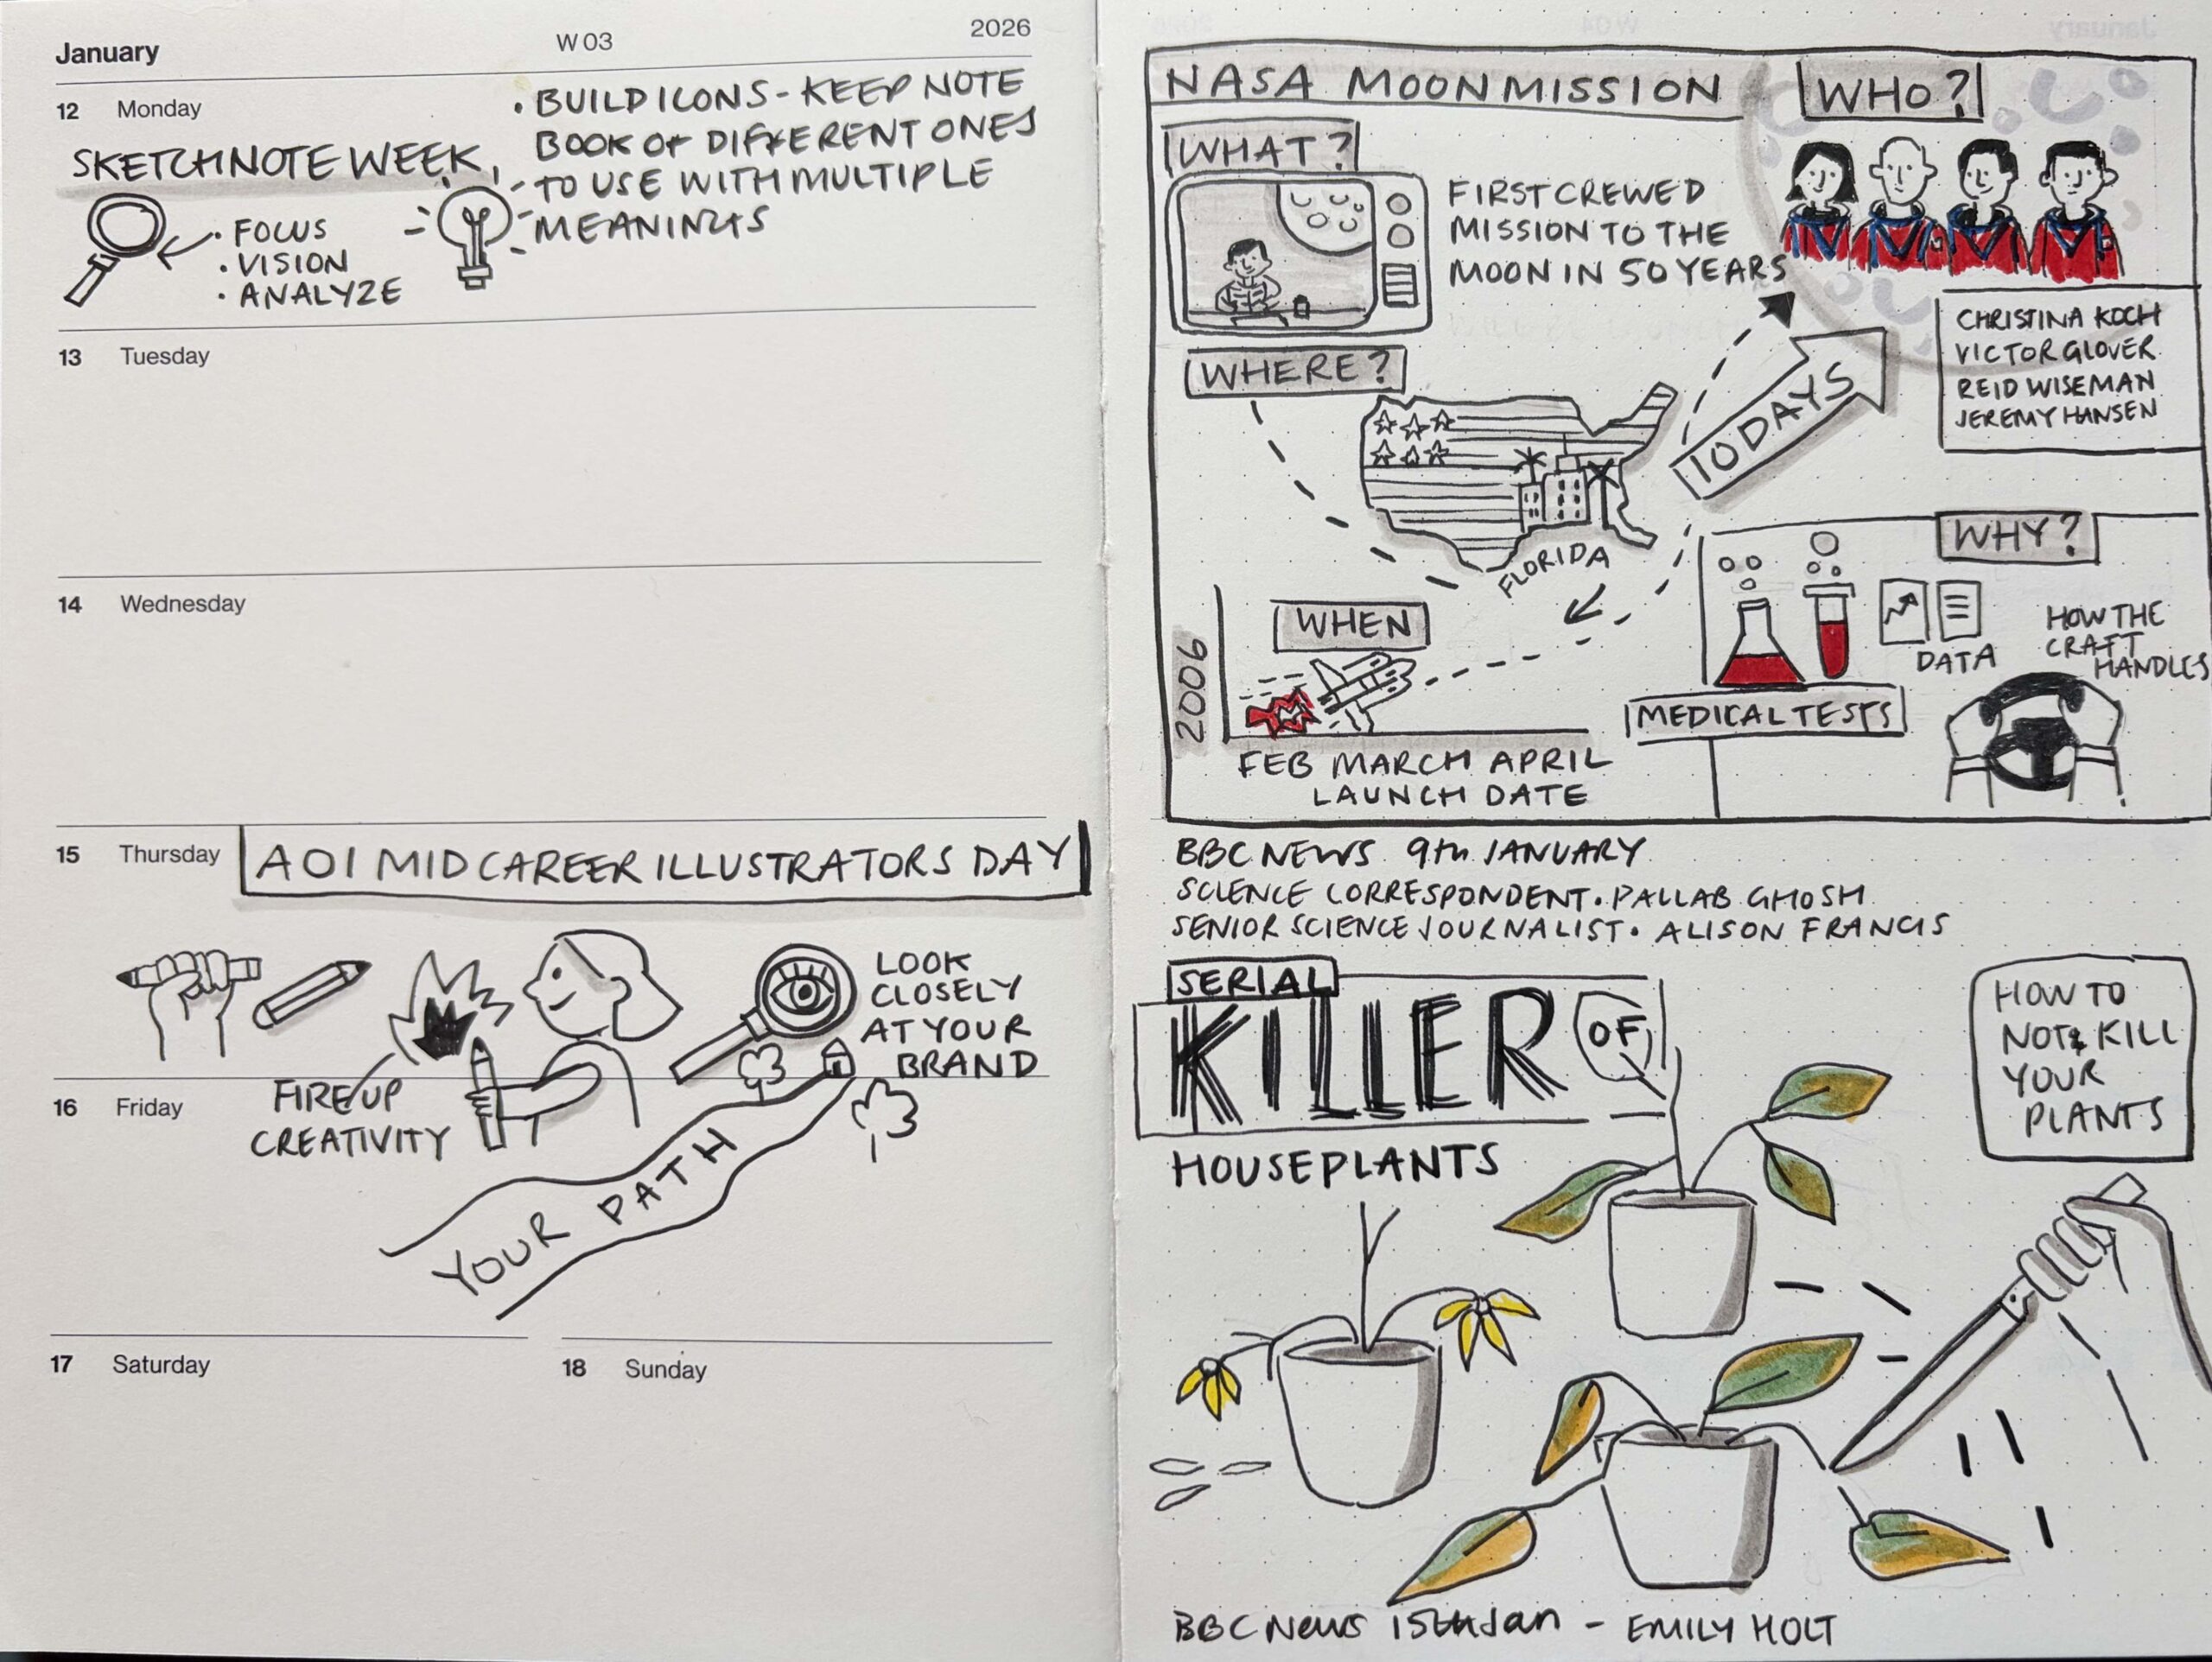 January W03 2026
12 Monday
SKETCHNOTE WEEK,
• FOCUS
• VISION
• ANALYZE
• BUILD ICONS - KEEP NOTE
BOOK OF DIFFERENT ONES
TO USE WITH MULTIPLE
MEANINGS
13 Tuesday
14 Wednesday
15 Thursday
AOI MID CAREER ILLUSTRATORS DAY
FIRE UP
CREATIVITY
LOOK
CLOSELY
AT YOUR
BRAND
YOUR PATH
16 Friday
17 Saturday
18 Sunday
NASA MOON MISSION
WHAT?
FIRST CREWED
MISSION TO THE
MOON IN 50 YEARS
WHO?
CHRISTINA KOCH
VICTOR GLOVER
REID WISEMAN
JEREMY HANSEN
WHERE?
FLORIDA
10 DAYS
WHEN
2006
FEB MARCH APRIL
LAUNCH DATE
WHY?
MEDICAL TESTS
DATA
HOW THE
CRAFT
HANDLES
BBC NEWS 9th JANUARY
SCIENCE CORRESPONDENT. PALLAB GHOSH
SENIOR SCIENCE JOURNALIST. ALISON FRANCIS
SERIAL
KILLER OF
HOUSEPLANTS
HOW TO
NOT KILL
YOUR
PLANTS
BBC News 15th Jan - EMILY HOLT